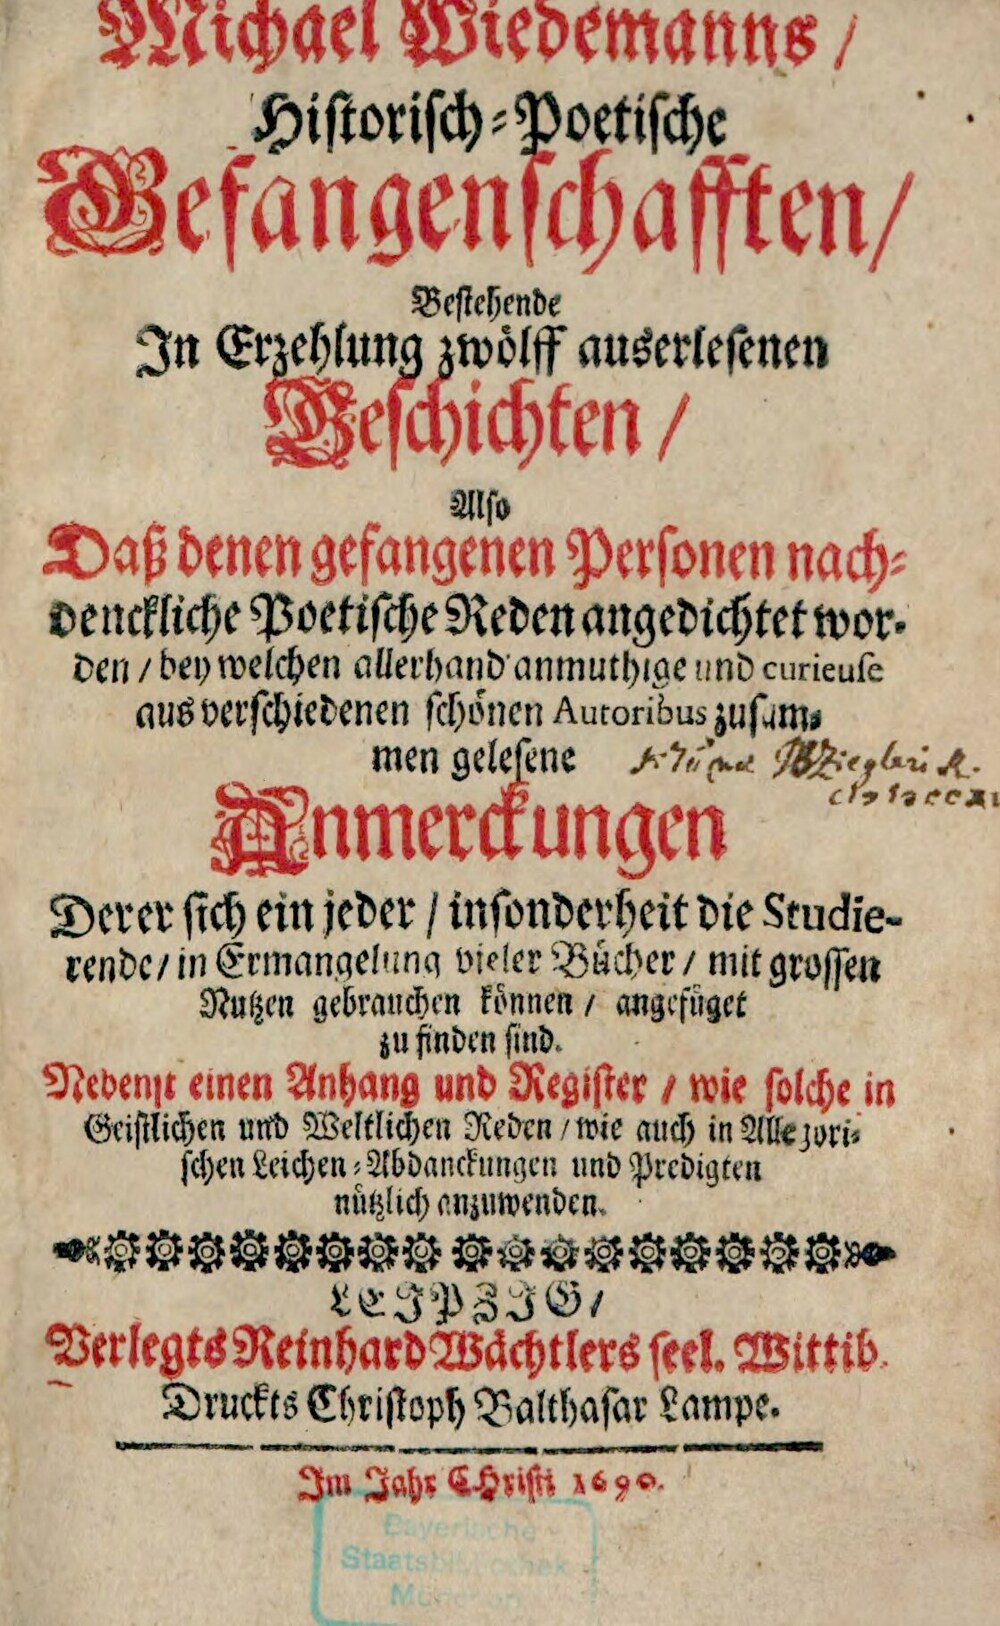 Michael Wiedemanns /
Historisch-Poetische
Gefangenschafften /
Bestehende
In Erzehlung zwölff auserlesenen
Geschichten /
Also
Daß denen gefangenen Personen nach-
denckliche Poetische Reden angedichtet wor-
den / bey welchen allerhand anmuthige und curieuse
aus verschiedenen schönen Autoribus zusam-
men gelesene
Anmerckungen
Derer sich ein jeder / insonderheit die Studie-
rende / in Ermangelung vieler Bücher / mit grossen
Nutzen gebrauchen können / angefüget
zu finden sind.
Nebenst einen Anhang und Register / wie solche in
Geistlichen und Weltlichen Reden / wie auch in Allegori-
schen Leichen-Abdanckungen und Predigten
nützlich anzuwenden.
LEIPZIG /
Verlegts Reinhard Wächtlers seel. Wittib.
Druckts Christoph Balthasar Lampe.
Im Jahr CHristi 1690.
Bayerische
Staatsbibliothek
München